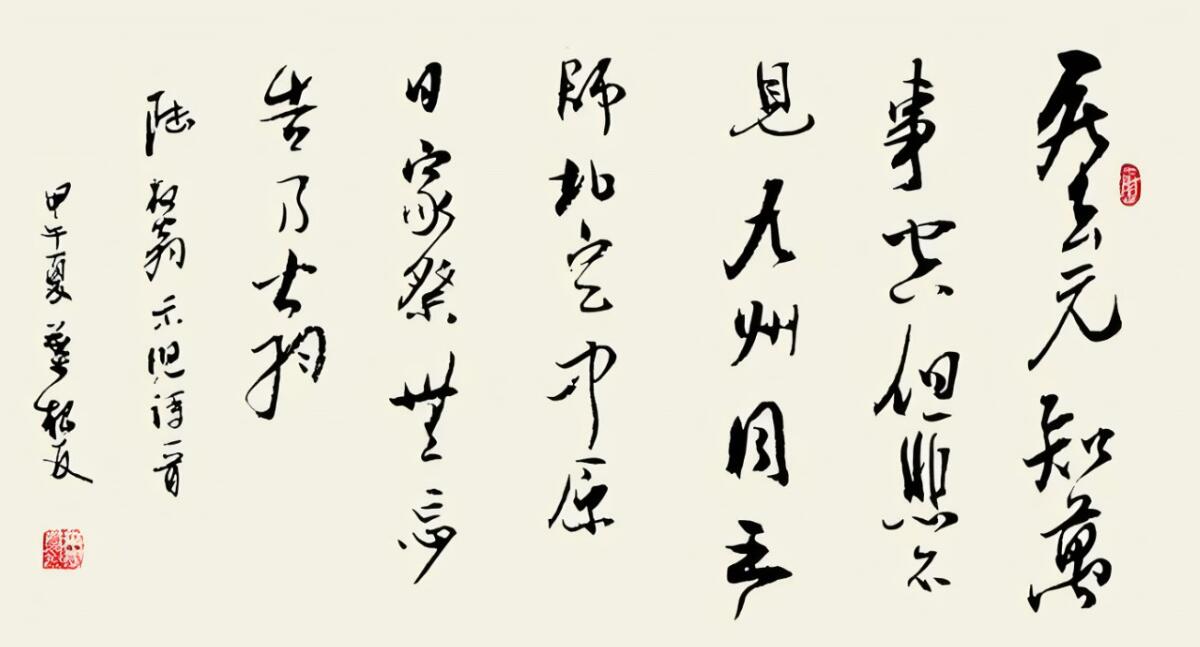 死去元知萬
事空但悲不
見九州同王
師北定中原
日家祭無忘
告乃翁
陸放翁示兒詩一首
甲午夏葉根友